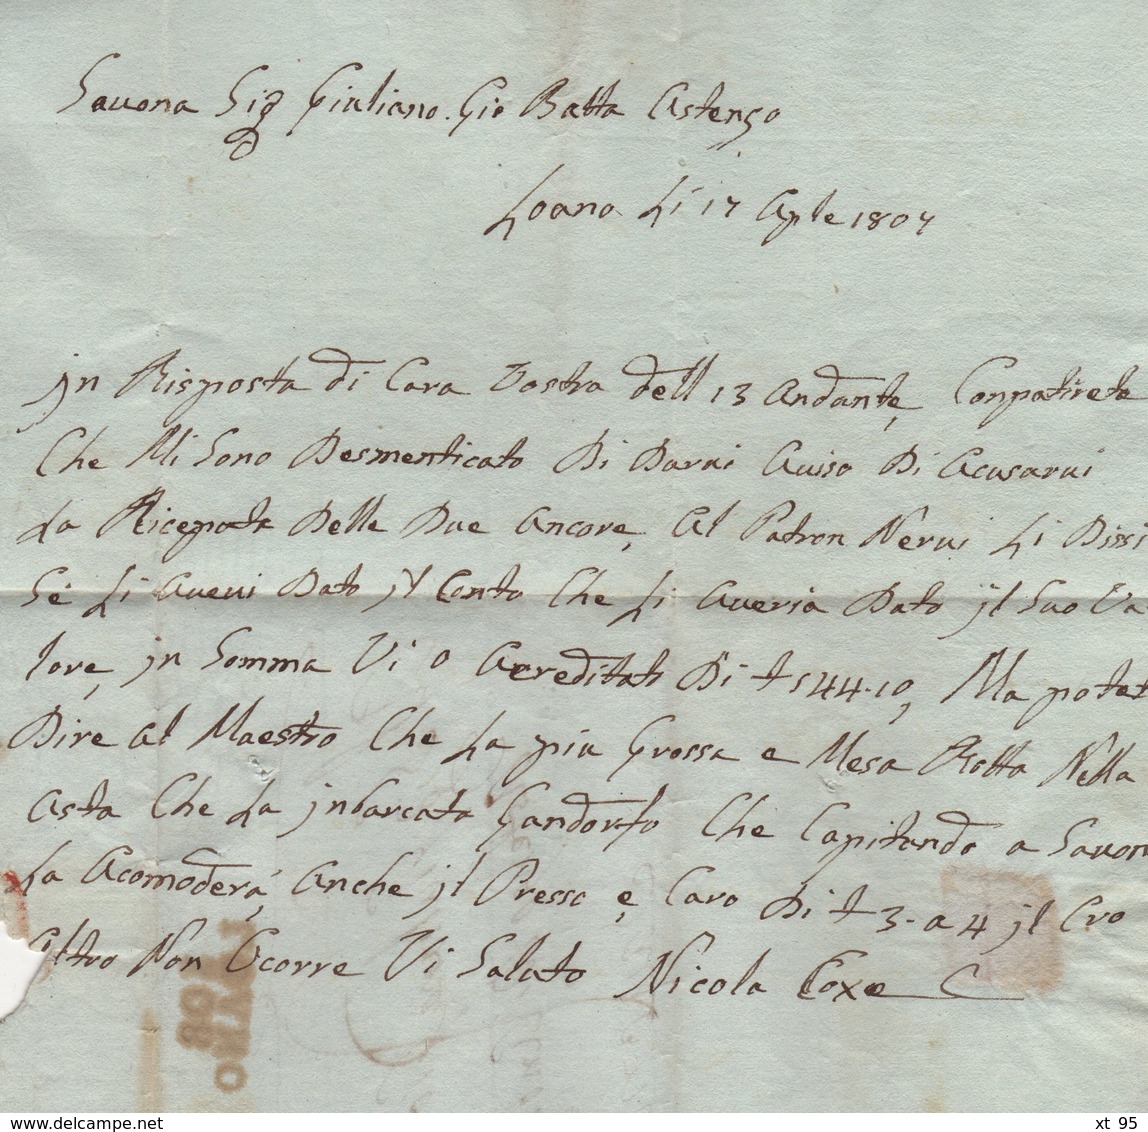 Savona Sig Giuliano. Gio Batta Astengo
Loano Li 17 Aple 1807
jn Risposta di Cara Vostra dell 13 Andante, Conpatirete
Che Mi Sono Desmenticato Di Darvi Auiso Di Acusarui
La Riceputa Delle Due Ancore, Al Patron Nerui Li Dissi
Se Li Aueui Dato jl Conto Che Li Aueria Dato jl Suo Va
lore, jn Somma Vi o Acreditati Di £ 144.10, Ma potet
Dire al Maestro Che La piu Grossa e Mesa Rotta Nella
Asta Che La jnbarcata Gandorfo Che Capitando a Savon
La Acomoderá, Anche jl Presso e, Caro Di £ 3 - a 4 jl Cro
Altro Non Ocorre Vi Saluto Nicola
108
delcampe.net
xt 95